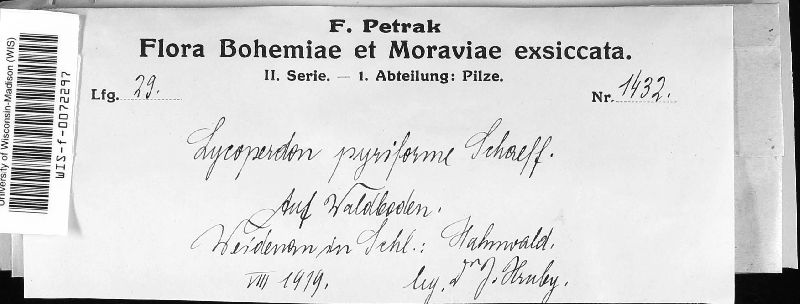 University of Wisconsin-Madison (WIS)
WIS-f-0072297
F. Petrak
Flora Bohemiae et Moraviae exsiccata.
II. Serie. — 1. Abteilung: Pilze.
Lfg. 29. Nr. 1432.
Lycoperdon pyriforme Schaeff.
Auf Waldboden.
Weidenau in Schl.: Hahnwald.
VIII 1919. leg. Dr J. Hruby.